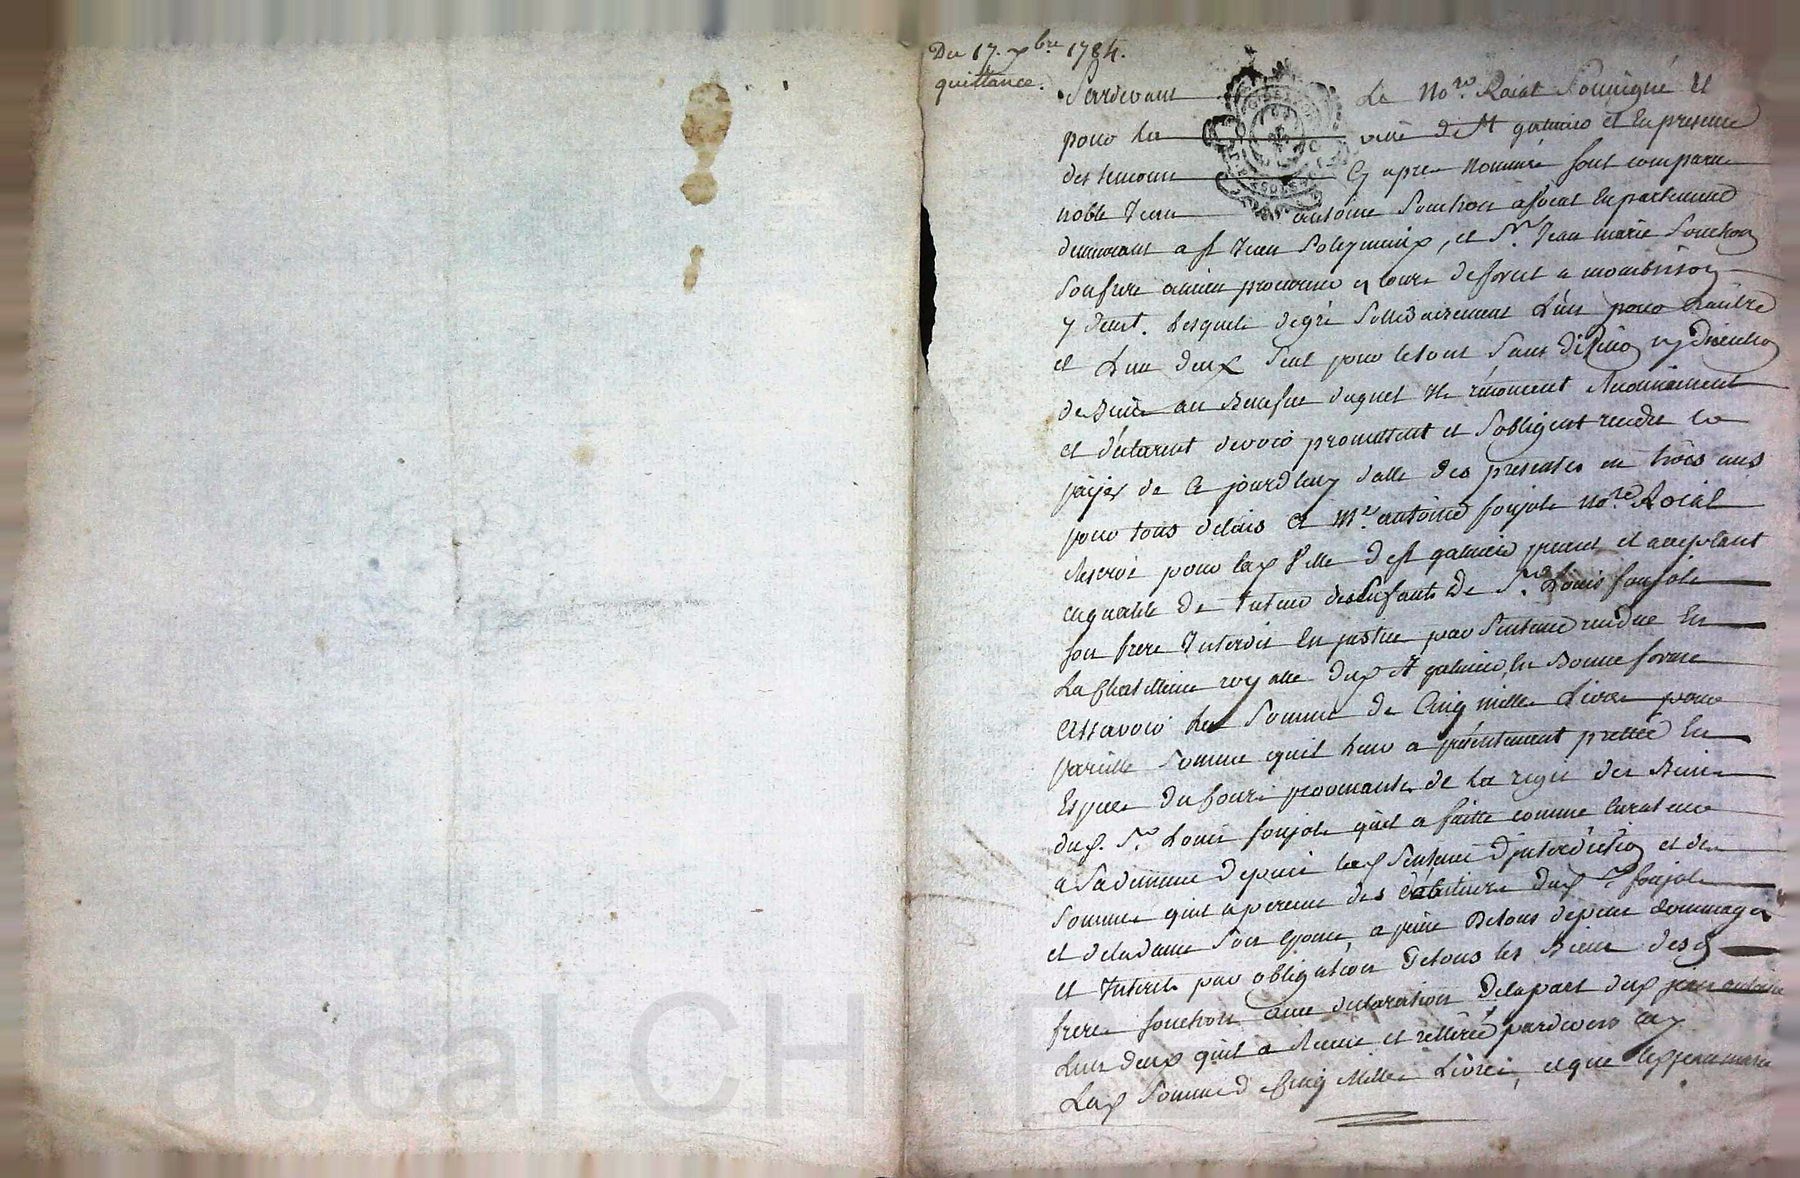 Du 17. xbre 1784.
quittance.
Pardevant Le No.re Roial Soussigné et
pour la ville de St galmier et En presence
des temoins Cy apres Nommés sont comparus
noble Jean antoine Souchon avocat En parlement
demeurant a St Jean Soleymieux, et Sr. Jean marie Souchon
Son frere ancien procureur es cours de forest a montbrison
y deut. Lesquels de gré Solidairement L'un pour L'autre
et L'un deux Seul pour le tout Sans division ny Discution
de Biens au Benefice duquel Ils renoncent Reconnoissent
et declarent devoir promettent et S'obligent rendre et
païer de Ce jourd'huy datte des presentes en trois ans
pour tous delais a Mr. antoine foujols No.re Roial
Reservé pour lad ville de St galmier present et acceptant
en qualité de Tuteur des Enfants de Sr. Louis foujols
son frere Interdit En justice par Sentence rendue En
La Chatellenie royalle dud St galmier, En Bonne forme
assavoir La Somme de Cinq mille Livres pour
pareille Somme quil leur a présentement prettée En
Especes du Cours provenante de la regie des Biens
dud. Sr. Louis foujols qu'il a faitte comme Curateur
a Sa demence depuis lad Sentence d'interdiction et des
Sommes quil a perceues des debiteurs dud Sr foujols
et de la dame Son Epouse, a peine de tous depens dommages
et Interets par obligation de tous les Biens desd
freres Souchon avec declaration de la part dud jean antoine
L'un deux quil a Receu et rettiré pardevers luy
Lad Somme de Cinq Mille Livres, et que led jean marie
Pascal CHAP